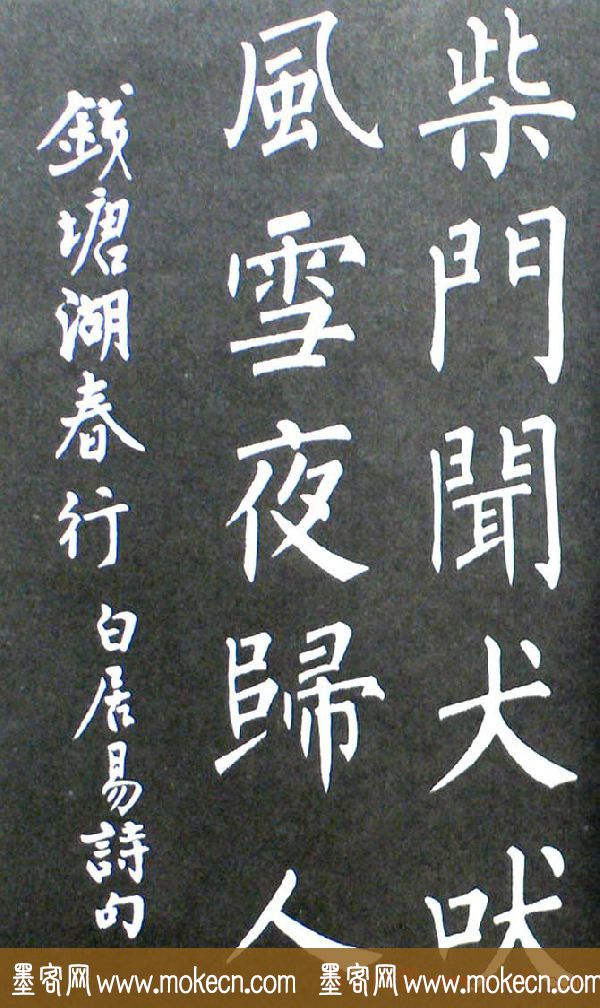 柴門聞犬吠
風雪夜歸人
錢塘湖春行 白居易詩句
墨客网 www.mokecn.com 墨客网 www.mokecn.com